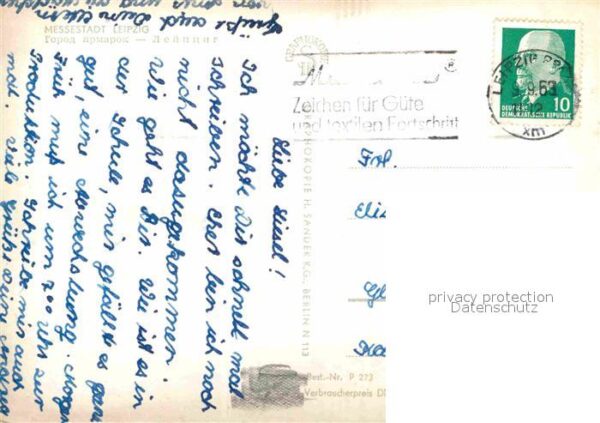 MESSESTADT LEIPZIG
Город ярмарок — Лейпциг
Liebe Liesel!
Ich möchte Dir schnell mal
schreiben. Eher bin ich noch
nicht dazugekommen.
Wie geht es Dir. Wie ist es in
der Schule, mir gefällt es ganz
gut, eine Abwechslung. Morgen
Früh muß ich um 7 00 Uhr zur
Produktion. Schreibe mir auch
mal. Viele Grüße
Grüße auch Deine Eltern
von
Zeichen für Güte
und textilen Fortschritt
LEIPZIG
9.69
12
xm
10
DEUTSCHE
DEMOKRATISCHE REPUBLIK
H. SANDER K.G., BERLIN N 113
Frl.
Best.-Nr. P 273
Verbraucherpreis
privacy protection
Datenschutz